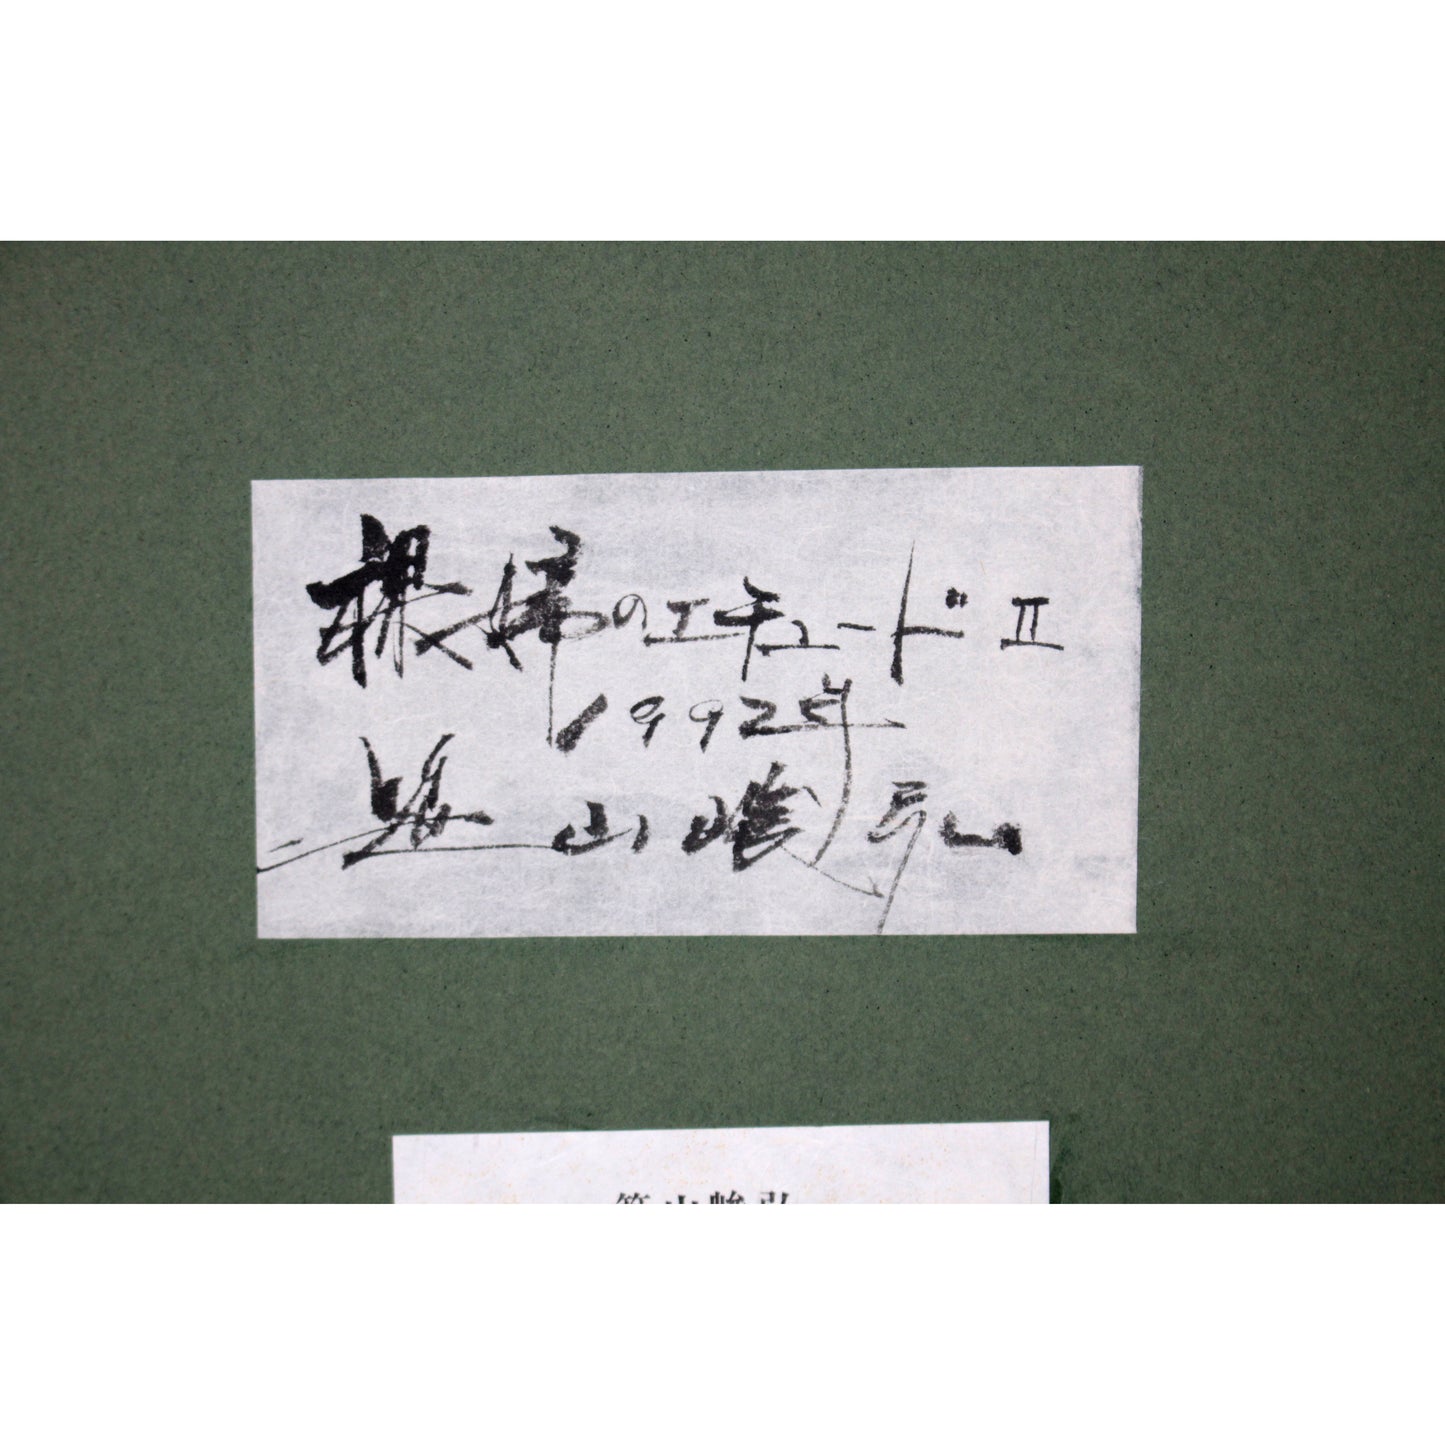 裸婦のエチュードⅡ
1992年
山峻弘
山峻弘